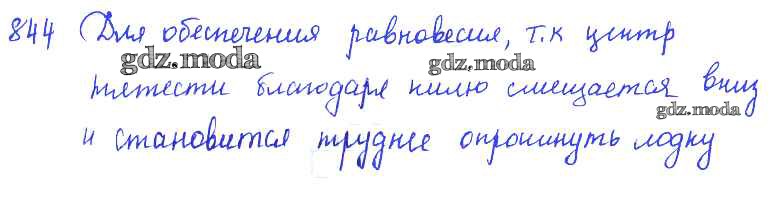 844 Для обеспечения равновесия, т.к центр
gdz.moda gdz.moda
тяжести благодаря килю смещается вниз
gdz.moda
и становится труднее опрокинуть лодку